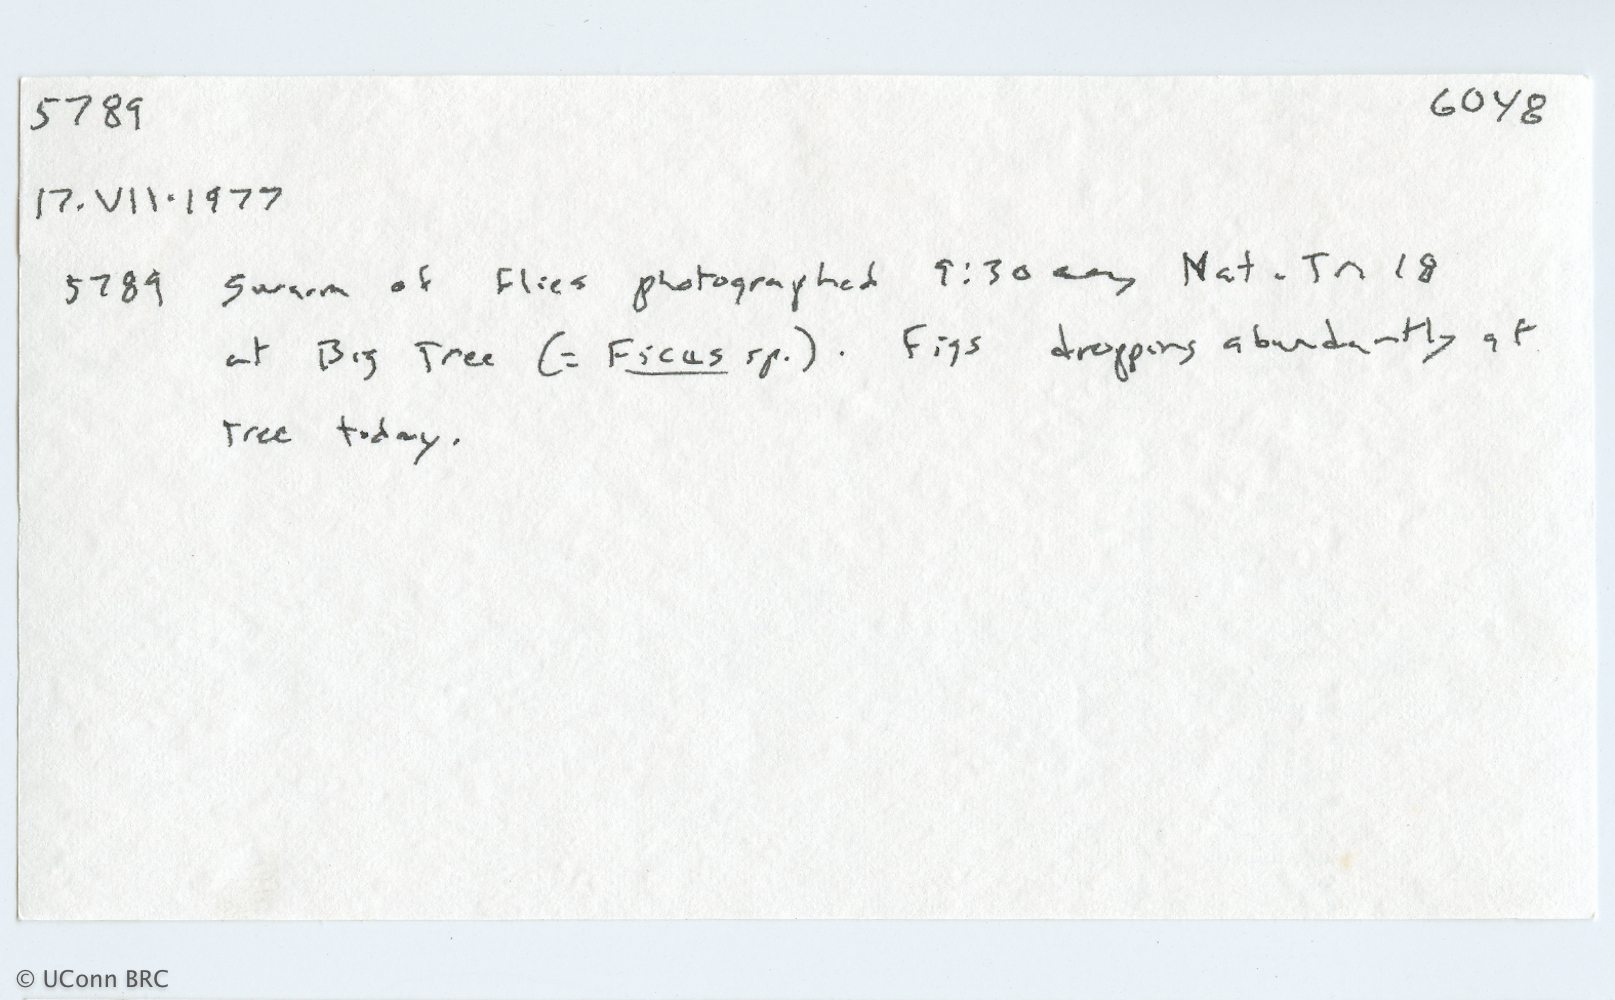 5789 6048
17.VII.1977
5789 Swarm of flies photographed 9:30 am, Nat. Tr 18
at Big Tree (= Ficus sp.). Figs dropping abundantly at
tree today.
© UConn BRC